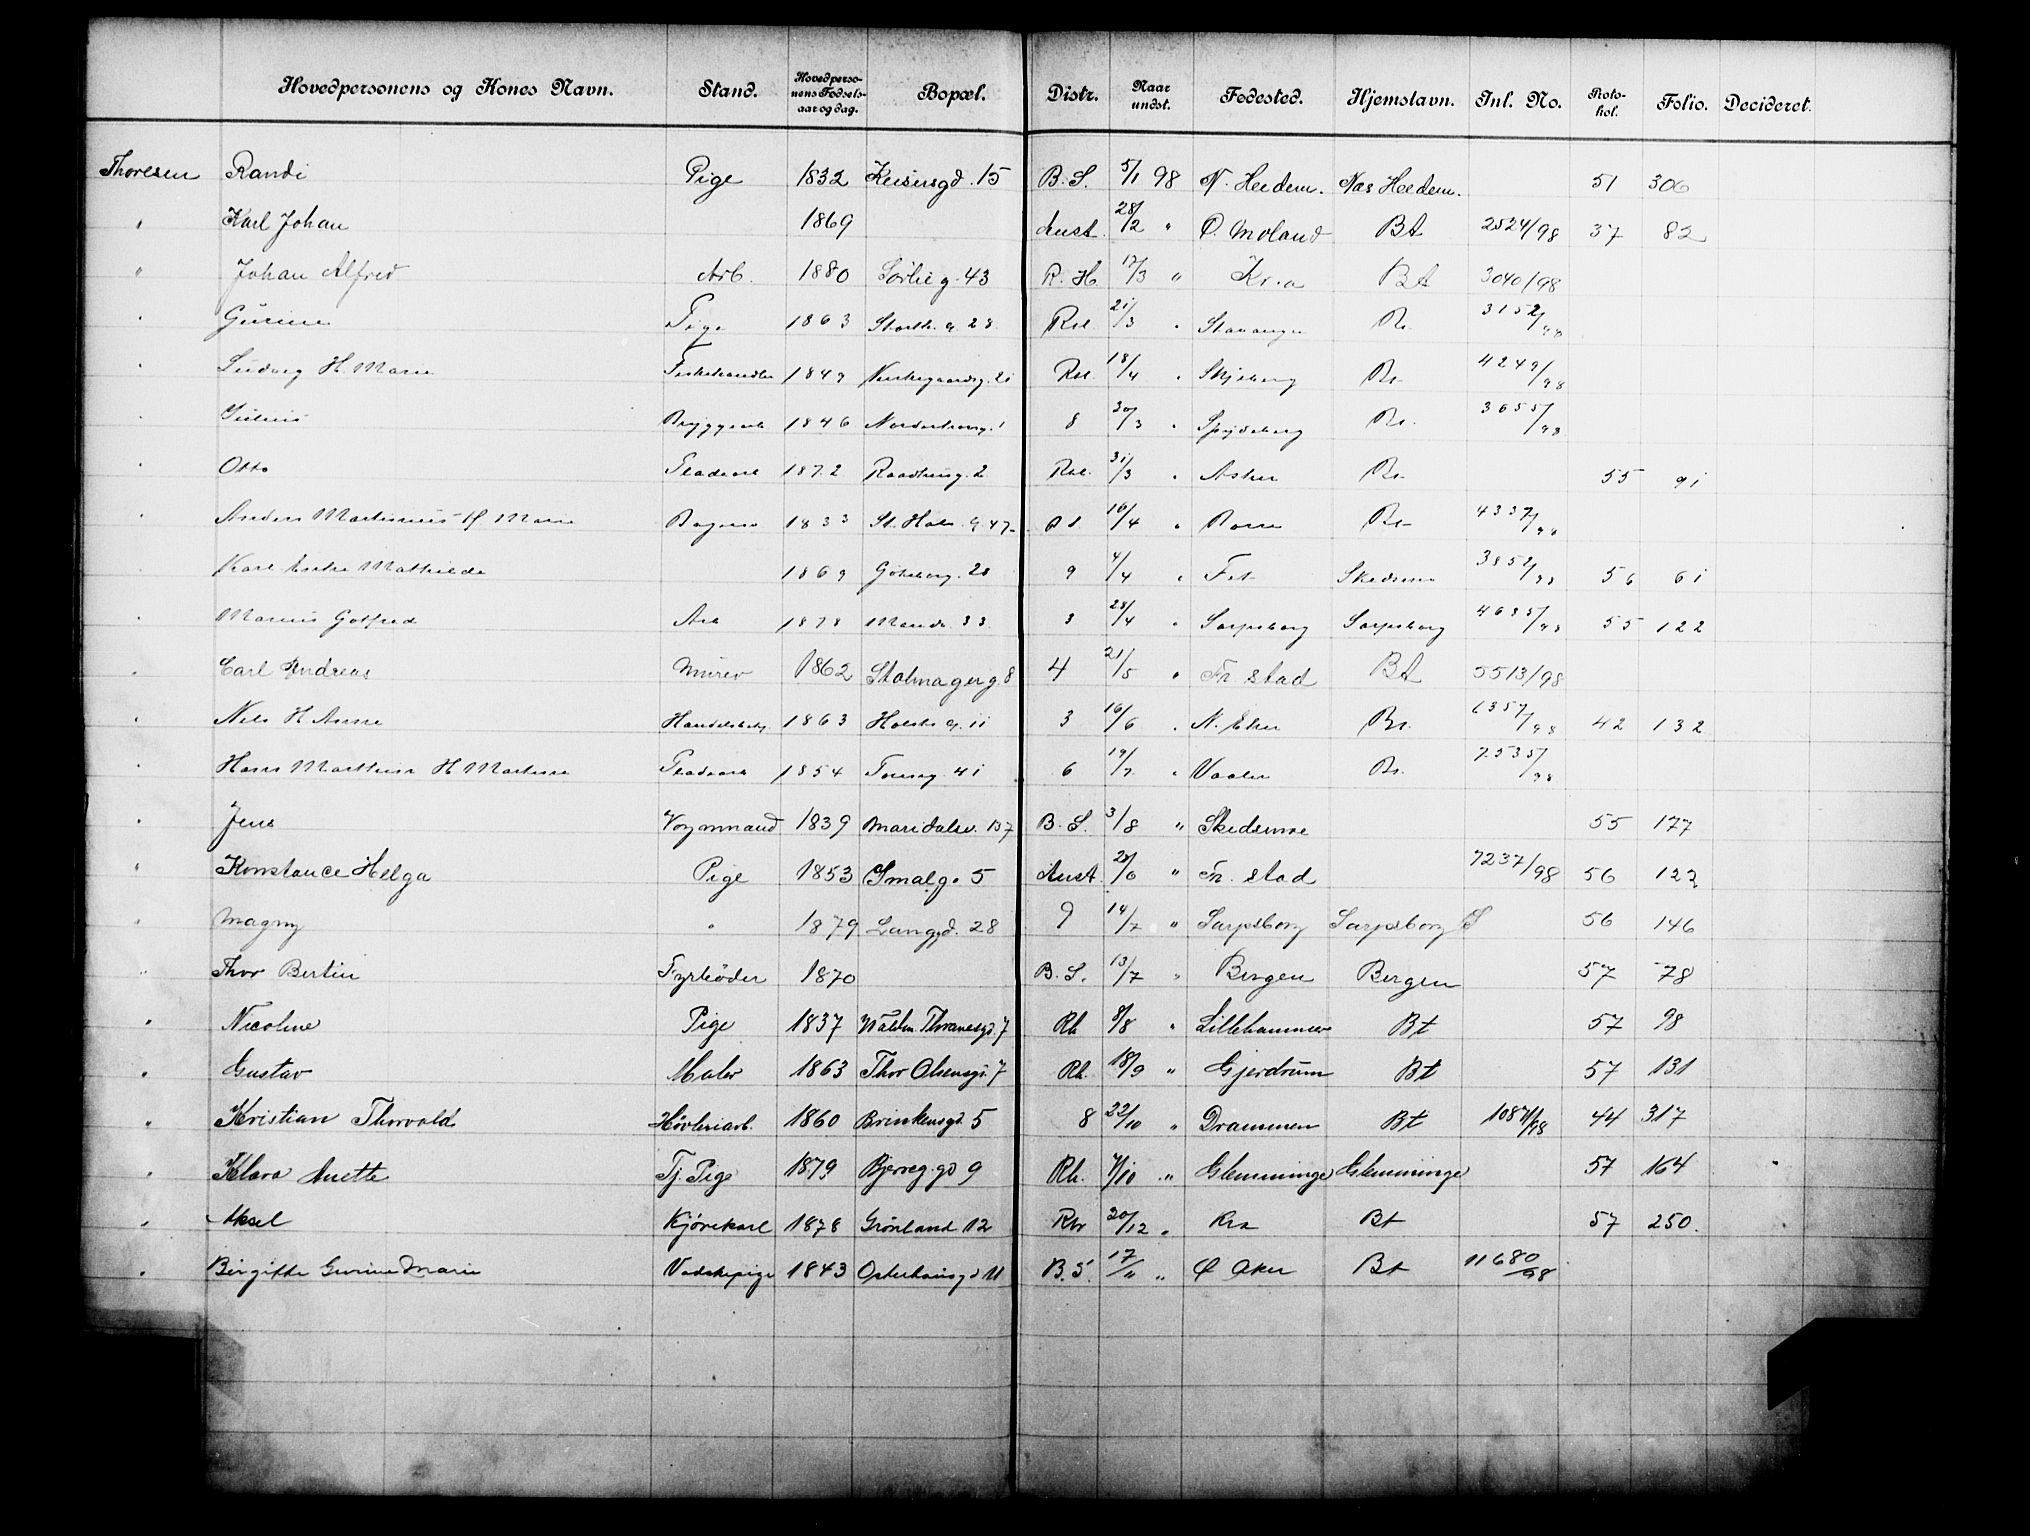 Hovedpersonens og Kones Navn. Stand. Hovedpersonens Fødselsaar og dag. Bopæl. Distr. Naar undst. Fødested. Hjemstavn. Inl. No. Protokol. Folio. Decideret.
Thoresen Randi Pige 1832 Keisersgd. 15 B. S. 5/1 98 N. Hedem. Næs Hedem. 51 306
" Karl Johan 1869 Aust. 28/2 " Ø. Moland Bt 2524/98 37 82
" Johan Alfred Arb. 1880 Sørlig. 43 R. H. 17/3 " Kr.a Bt 3040/98
" Gurine Pige 1863 Storth. g. 28 Rst. 21/3 " Stavanger Bt. 3152/98
" Ludvig H. Marie Fiskehandler 1849 21 Rst. 18/4 " Skjeberg Bt 4249/98
" Julius Bryggearb 1846 8 30/3 " Spydeberg Bt. 3655/98
" Otto Pladsarb 1872 Raadhusg. 2 Rst. 31/3 " Asker Bt. 55 91
" Anders Martinius H. Marie Bagersv 1833 St. Halv. g. 47 16/4 " Borre Bt 4337/98
Karl Enke Mathilde 1869 Göteborg. 28 9 4/4 " Fet Skedsmo 3852/98 56 61
" Marius Gotfred Arb 1878 33. 3 28/4 " Sarpsborg Sarpsborg 4685/98 55 122
" Carl Andreas Murer 1862 Stolmagerg. 8 4 21/5 " Fr. stad Bt 5513/98
" Nils H Anna Handelsbetj. 1863 Holsts g. 11 3 16/6 " N. Eker Bt. 6357/98 42 132
" Hans Matthias H Martine Pladsarb 1854 Toieng. 41 6 19/7 " Vaaler Bt. 7535/98
" Jens Vognmand 1839 Maridalsv. 137 B. S. 3/8 " Skedsmoe 55 177
" Konstance Helga Pige 1853 Smalg. 5 Aust. 20/6 " Fr. stad 7237/98 56 122
" Magny " 1879 Langgd. 28 9 14/7 " Sarpsborg Sarpsborg S 56 146
" Thor Bertin Fyrbøder 1870 B. S. 13/7 " Bergen Bergen 57 78
" Nicoline Pige 1837 Waldm. Thranesgd. 7 Rh 8/8 " Lillehammer Bt 57 98
" Gustav Maler 1863 Thor Olsensgd. 7 Rh. 18/9 " Gjerdrum Bt 57 131
" Kristian Thorvald Høvleriarb. 1860 Brinkensgd. 5 8 22/10 " Drammen Bt 10871/98 44 317
" Klara Anette Tj. Pige 1879 Bjerreg. gd 9 Rh. 7/10 " Glemminge Glemminge 57 164
" Aksel Kjørekarl 1878 Grønland 12 Rh 20/12 " Kra Bt 57 250.
" Birgitte Gurine Marie Vadskepige 1843 Osterhausgd 11 B. S. 17/11 " Ø Aker Bt 11680/98